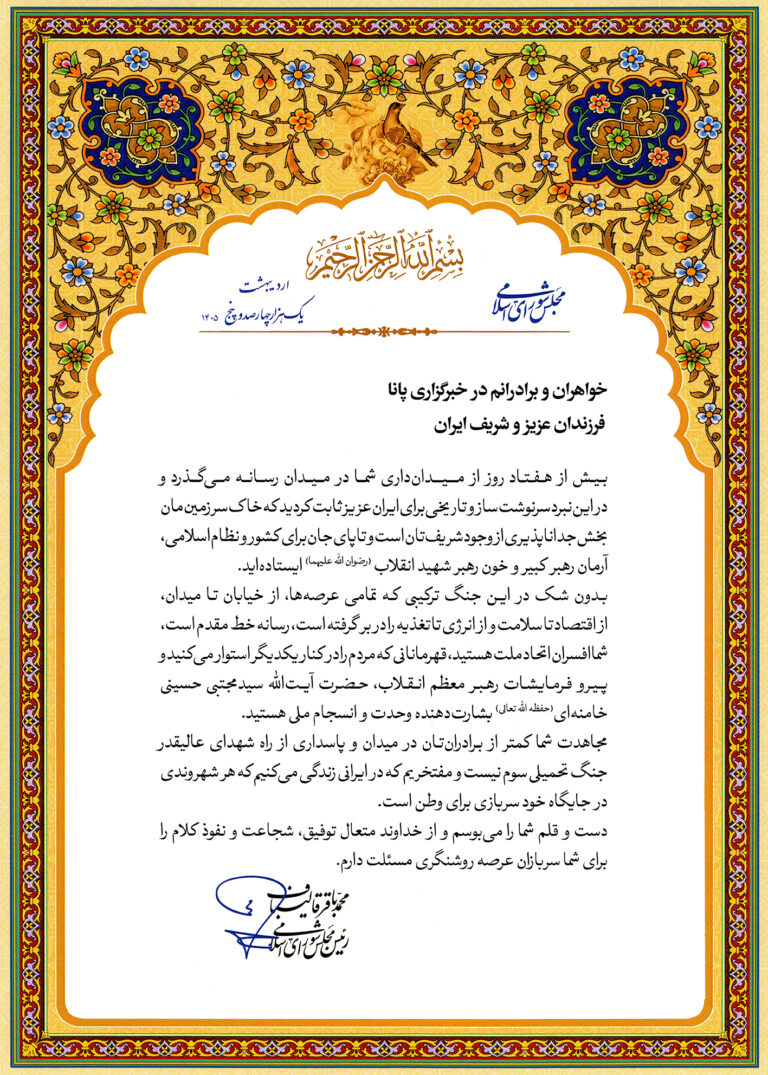 بسم الله الرحمن الرحیم
مجلس شورای اسلامی
اردیبهشت
یک هزار چهارصد و پنج ۱۴۰۵
خواهران و برادرانم در خبرگزاری پانا
فرزندان عزیز و شریف ایران
بیش از هفتاد روز از میدان‌داری شما در میدان رسانه می‌گذرد و
در این نبرد سرنوشت ساز و تاریخی برای ایران عزیز ثابت کردید که خاک سرزمین مان
بخش جدا ناپذیری از وجود شریف تان است و تا پای جان برای کشور و نظام اسلامی،
آرمان رهبر کبیر و خون رهبر شهید انقلاب (رضوان الله علیهما) ایستاده‌اید.
بدون شک در این جنگ ترکیبی که تمامی عرصه‌ها، از خیابان تا میدان،
از اقتصاد تا سلامت و از انرژی تا تغذیه را در بر گرفته است، رسانه خط مقدم است،
شما افسران اتحاد ملت هستید، قهرمانانی که مردم را در کنار یکدیگر استوار می‌کنید و
پیرو فرمایشات رهبر معظم انقلاب، حضرت آیت‌الله سید مجتبی حسینی
خامنه‌ای (حفظه الله تعالی) بشارت‌دهنده وحدت و انسجام ملی هستید.
مجاهدت شما کمتر از برادران‌تان در میدان و پاسداری از راه شهدای عالیقدر
جنگ تحمیلی سوم نیست و مفتخریم که در ایرانی زندگی می‌کنیم که هر شهروندی
در جایگاه خود سربازی برای وطن است.
دست و قلم شما را می‌بوسم و از خداوند متعال توفیق، شجاعت و نفوذ کلام را
برای شما سربازان عرصه روشنگری مسئلت دارم.
محمدباقر قالیباف
رئیس مجلس شورای اسلامی